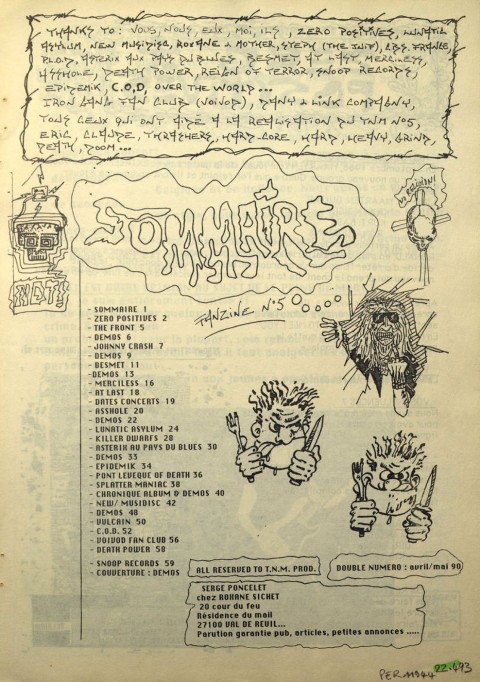 THANKS TO : VOUS, NOUS, EUX, MOI, ILS, ZERO POSITIVES, LUNATIC
ASYLUM, NEW MUSIDISC, ROXANE & MOTHER, STEPH (THE INIT), CBS FRANCE,
P.L.O.D, ASTERIX AUX PAYS DU BLUES, BESMET, AT LAST, MERCILESS,
ASSHOLE, DEATH POWER, REIGN OF TERROR, SNOOP RECORDS,
EPIDEMIK, C.O.D, OVER THE WORLD...
IRON GANG FAN CLUB (VOIVOD), DANY & LINK COMPAGNY,
TOUS CEUX QUI ONT AIDE A LA REALISATION DU TNM NO5,
ERIC, CLAUDE, THRASHERS, HARD-CORE, HARD, HEAVY, GRIND,
DEATH, DOOM...
SOMMAIRE
NOTS
FANZINE N°5
- SOMMAIRE 1
- ZERO POSITIVES 2
- THE FRONT 5
- DEMOS 6
- JOHNNY CRASH 7
- DEMOS 9
- BESMET 11
-DEMOS 13
- MERCILESS 16
- AT LAST 18
- DATES CONCERTS 19
- ASSHOLE 20
- DEMOS 22
- LUNATIC ASYLUM 24
- KILLER DWARFS 28
- ASTERIX AU PAYS DU BLUES 30
- DEMOS 33
- EPIDEMIK 34
- PONT LEVEQUE OF DEATH 36
- SPLATTER MANIAC 38
- CHRONIQUE ALBUM & DEMOS 40
- NEW/ MUSIDISC 42
- DEMOS 48
- VULCAIN 50
- C.O.D. 52
- VOIVOD FAN CLUB 56
- DEATH POWER 58
- SNOOP RECORDS 59
- COUVERTURE : DEMOS
ALL RESERVED TO T.N.M. PROD.
DOUBLE NUMERO : avril/mai 90
SERGE PONCELET
chez ROXANE SICHET
20 cour du feu
Résidence du mail
27100 VAL DE REUIL...
Parution garantie pub, articles, petites annonces .....
22.493